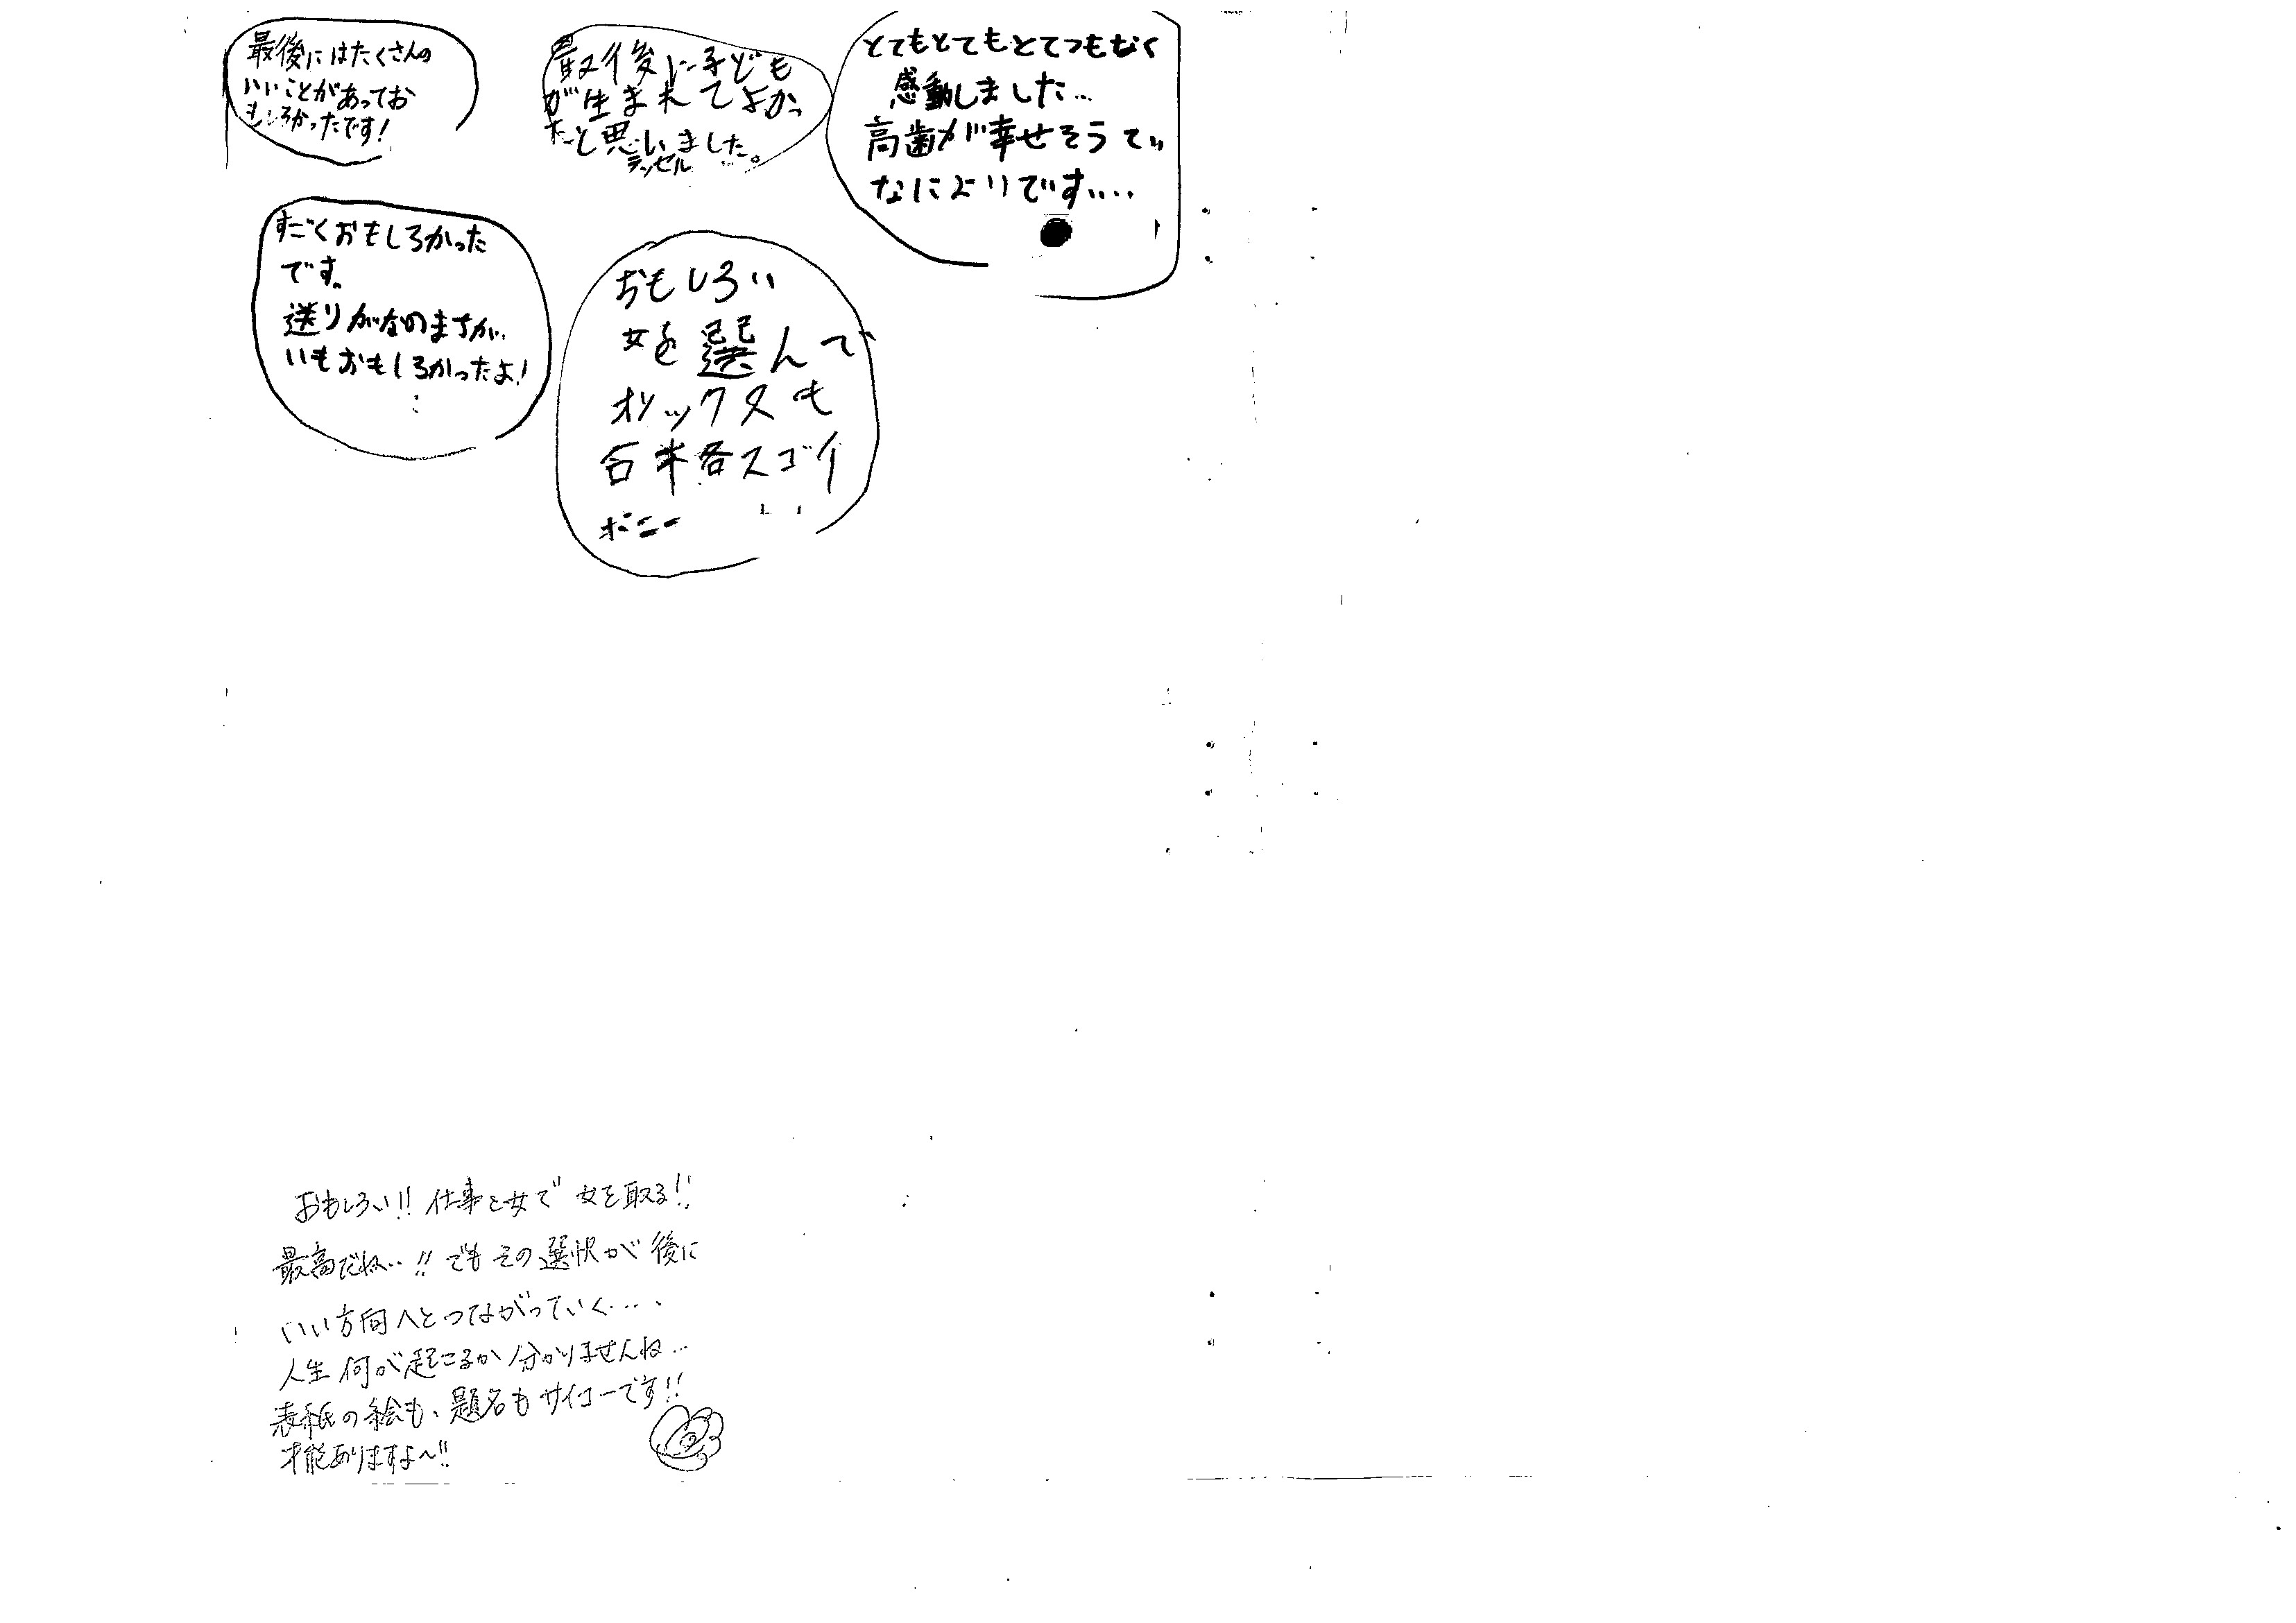 最後にはたくさんの
いいことがあってお
もしろかったです!
最後に子ども
が生まれてよかっ
たと思いました。
ランセル
とてもとてもとてつもなく
感動しました…
高歯が幸せそうで
なによりです….
すごくおもしろかった
です。
送りがなのまちがい
いもおもしろかったよ!
おもしろい
女を選んで
オリックスも
合格スゴイ
ポニー
おもしろい!! 仕事と女で 女を取る!!
最高だね…!! でも その選択が 後に
いい方向へとつながっていく….
人生 何が起こるか分かりませんね…
表紙の絵も、題名もサイコーです!!
才能ありますよ〜!!